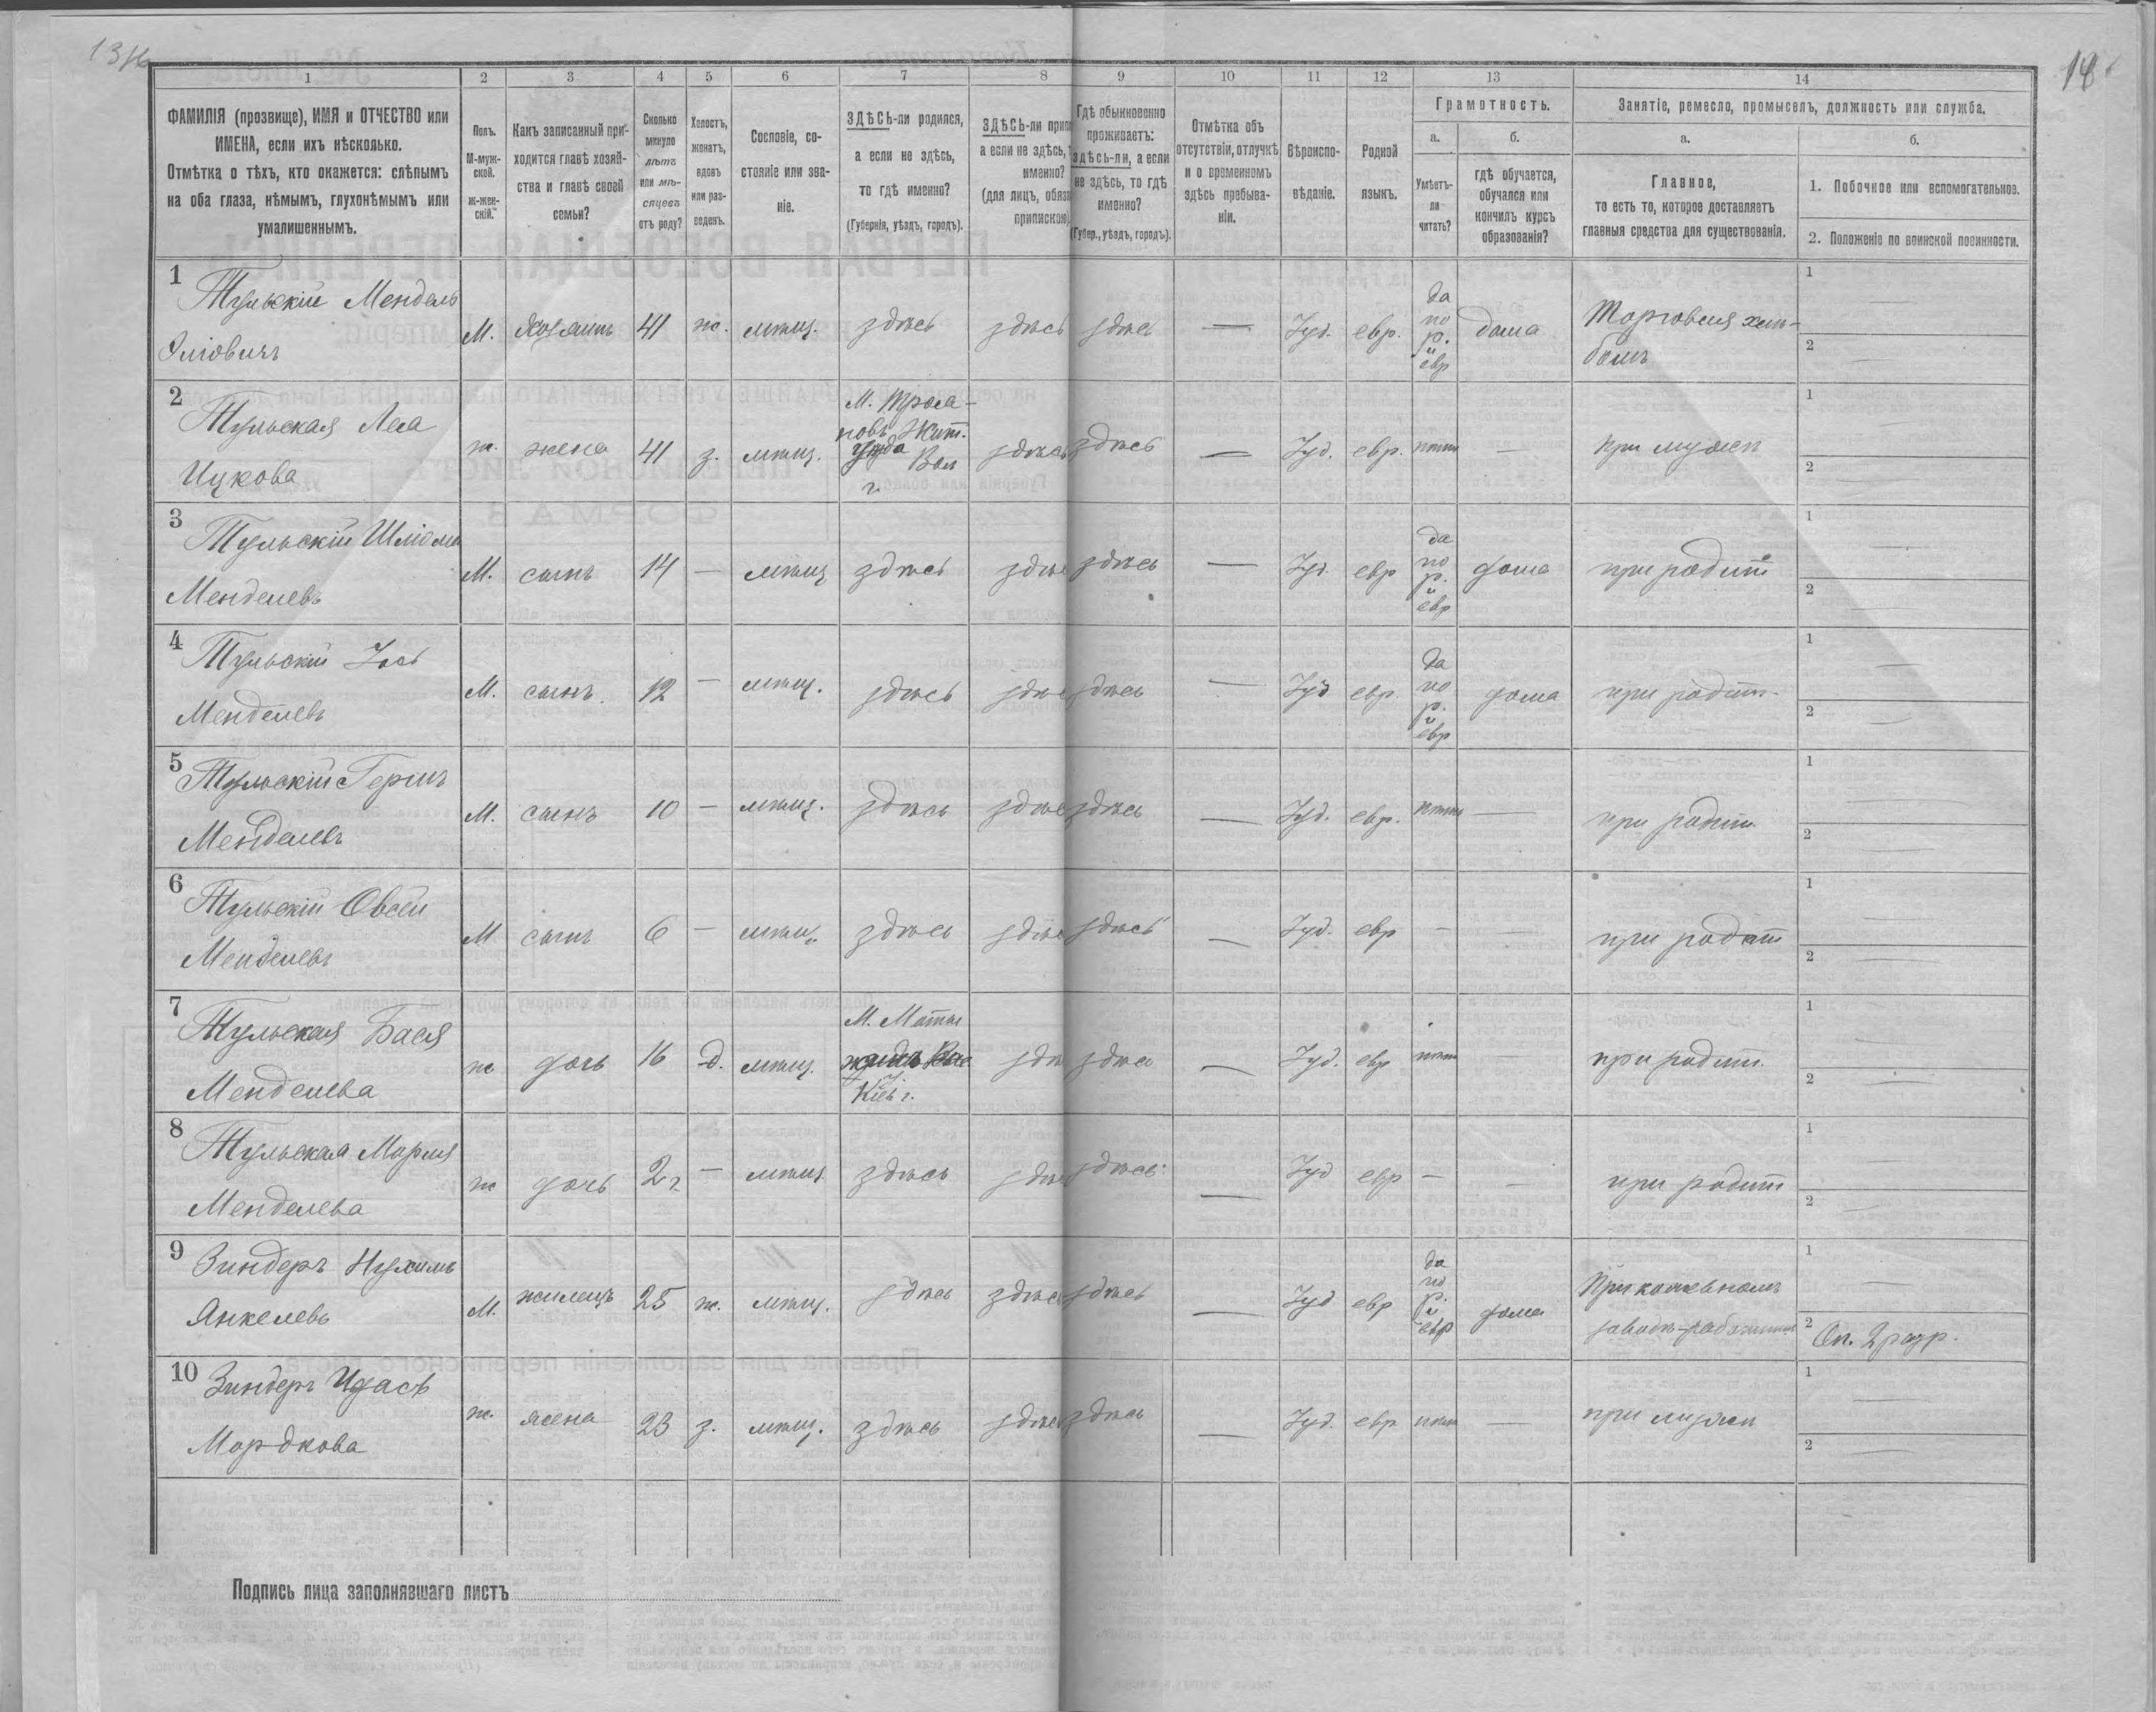 18
1 2 3 4 5 6 7 8 9 10 11 12 13 14
ФАМИЛІЯ (прозвище), ИМЯ и ОТЧЕСТВО или
ИМЕНА, если ихъ нѣсколько.
Отмѣтка о тѣхъ, кто окажется: слѣпымъ
на оба глаза, нѣмымъ, глухонѣмымъ или
умалишеннымъ.
Полъ.
М-муж-
ской.
Ж-жен-
скій.
Какъ записанный при-
ходится главѣ хозяй-
ства и главѣ своей
семьи?
Сколько
минуло
лѣтъ
или мѣ-
сяцевъ
отъ роду?
Холостъ,
женатъ,
вдовъ
или раз-
веденъ.
Сословіе, со-
стояніе или зва-
ніе.
ЗДѢСЬ-ли родился,
а если не здѣсь,
то гдѣ именно?
(Губернія, уѣздъ, городъ).
ЗДѢСЬ-ли
а если не здѣсь,
именно?
(для лицъ,
припискою
Гдѣ обыкновенно
проживаетъ:
здѣсь-ли, а если
не здѣсь, то гдѣ
именно?
(Губер., уѣздъ, городъ).
Отмѣтка объ
отсутствіи, отлучкѣ
и о временномъ
здѣсь пребыва-
ніи.
Вѣроиспо-
вѣданіе.
Родной
языкъ.
Грамотность.
а.
Умѣетъ-
ли
читать?
б.
гдѣ обучается,
обучался или
кончилъ курсъ
образованія?
Занятіе, ремесло, промыселъ, должность или служба.
а.
Главное,
то есть то, которое доставляетъ
главныя средства для существованія.
б.
1. Побочное или вспомогательное.
2. Положеніе по воинской повинности.
1 Тульскій Мендель
М. хозяинъ 41 ж. мѣщ. здѣсь здѣсь здѣсь — Іуд. евр. да по р. и евр дома Торговля хлѣ-
бомъ
1 —
2 —
2 Тульская Лея
Ицкова
ж. жена 41 з. мѣщ. М.
Жит.
Вол
г.
здѣсь здѣсь — Іуд. евр. нѣтъ — при мужѣ
1 —
2 —
3 Тульскій Шліома
Менделевъ
М. сынъ 14 — мѣщ здѣсь здѣсь — Іуд. евр да по р. и евр дома при родит
1 —
2 —
4 Тульскій Іось
Менделевъ
М. сынъ 12 — мѣщ. здѣсь здѣсь — Іуд евр. да по р. и евр дома при родит.
1 —
2 —
5 Тульскій Гершъ
Менделевъ
М. сынъ 10 — мѣщ. здѣсь здѣсь — Іуд. евр. нѣтъ — при родит.
1 —
2 —
6 Тульскій Овсей
Менделевъ
М сынъ 6 — мѣщ. здѣсь здѣсь — Іуд. евр — — при родит
1 —
2 —
7 Тульская Бася
Менделева
ж дочь 16 д. мѣщ. М.
Кіев г.
здѣсь — Іуд. евр нѣтъ — при родит.
1 —
2 —
8 Тульская Марія
Менделева
ж дочь 2 г. — мѣщ здѣсь здѣсь — Іуд евр — — при родит
1 —
2 —
9 Зиндеръ Нухимъ
Янкелевъ
М. жилецъ 25 ж. мѣщ. здѣсь здѣсь здѣсь — Іуд евр да по р. и евр дома При кожевномъ
заводѣ-работникъ
1 —
2 Оп. 2 разр.
10 Зиндеръ
Мордкова
ж. жена 23 з. мѣщ. здѣсь здѣсь здѣсь — Іуд. евр. нѣтъ — при мужѣ
1 —
2 —
Подпись лица заполнявшаго листъ